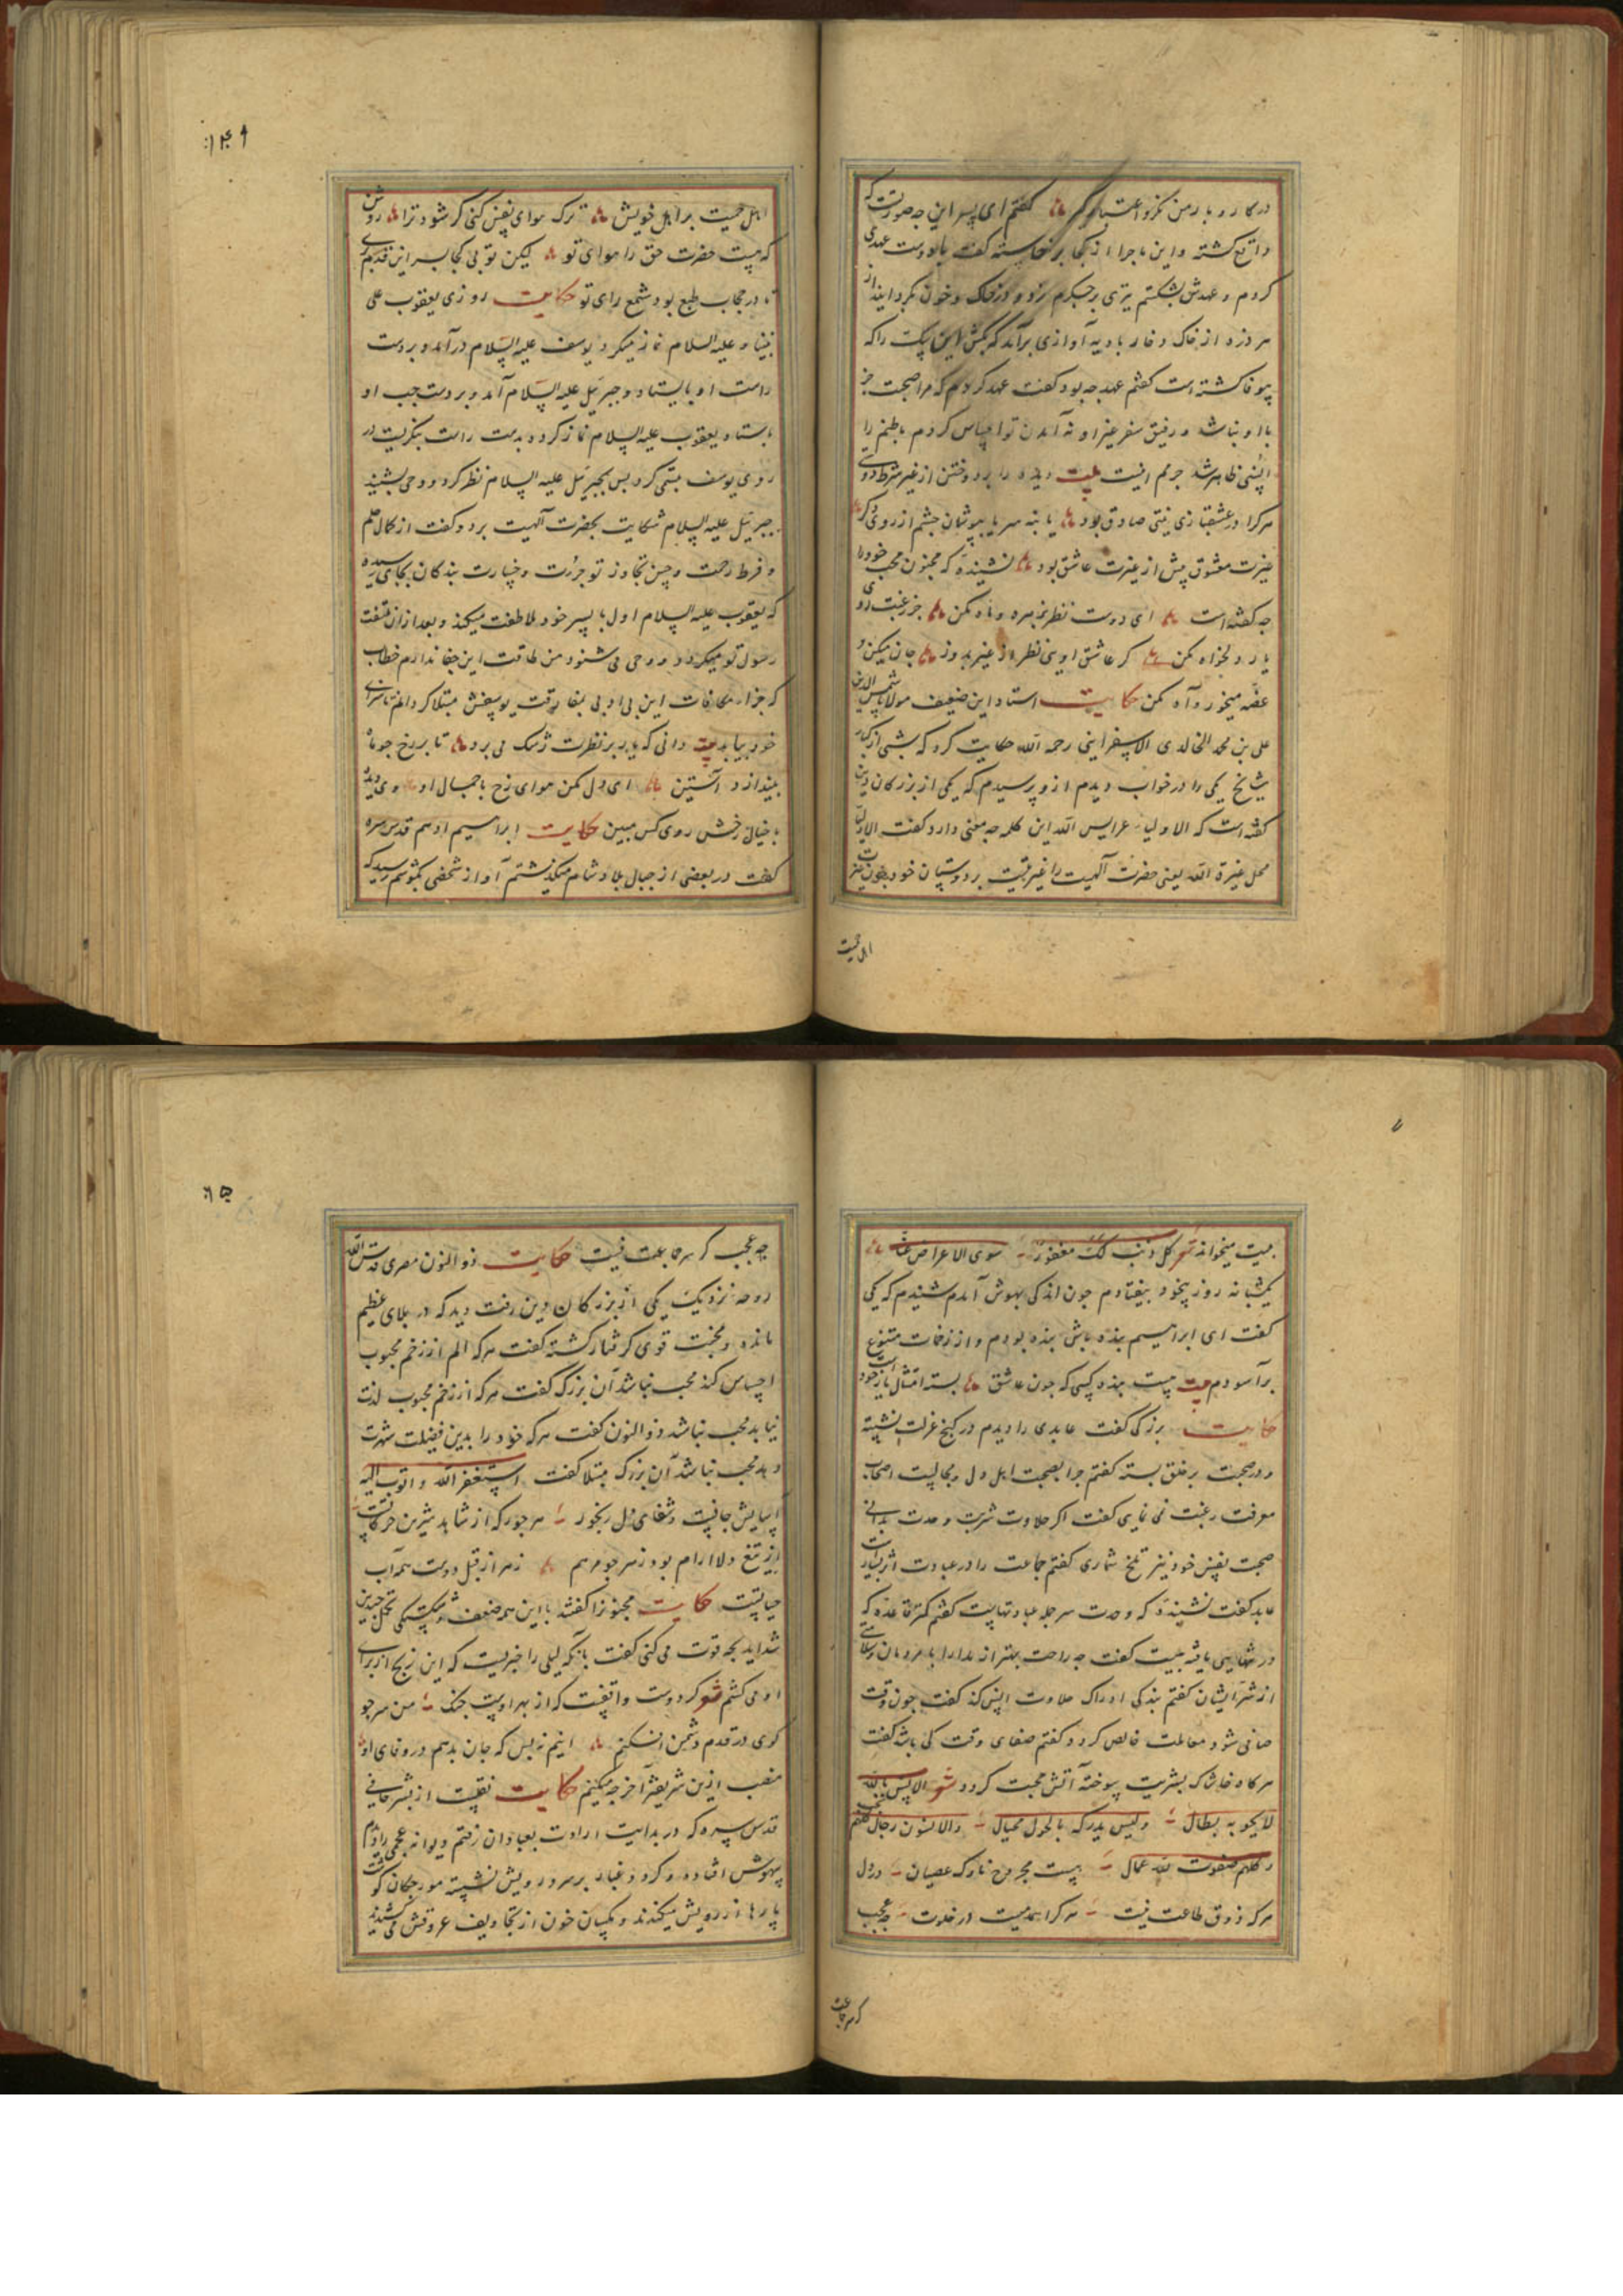 در کار و بار من نکر و اعتبار گیر گفتم ای پسر این چه صورتست که
واقع کشته و این ماجرا از کجا برخاسته گفت با دوست عهدی
کردم و عهدش بشکستم تیری بر جکرم زد و در خاک و خون بگردانید از
هر ذره از خاک و خار بادیه آوازی برآمد که بکش این را که
بیوفا کشته است گفتم عهد چه بود گفت عهد کردم که مرا صحبت جز
با او نباشد و رفیق سفر غیر او نه آمدن تو احساس کردم باطنم را
انسی ظاهر شد جرمم اینست بیت دیده را بردوختن از غیر شرط دوستی
هر کرا در عشقبازی نیتی صادق بود یا بنه سر یا بپوشان چشم از روی دکر
غیرت معشوق بیش از غیرت عاشق بود نشنیدهٔ که مجنون محب خود را
چه کفته است ای دوست نظر بمهر و ماه مکن جز رغبت روی
یار دلخواه مکن کر عاشق اویی نظر از غیر بدوز جان میکن و
غصه میخور و آه مکن حکایت استاد این ضعیف مولانا شمس الدین
علی بن محمد الخالدی الاسفراینی رحمه الله حکایت کرد که شبی از کبار
شایخ یکی را در خواب دیدم ازو پرسیدم که یکی از بزرکان دین
کفته است که الاولیاء عرایس الله این کلمه چه معنی دارد کفت الاولیا
محل غیرة الله یعنی حضرت آلهیت را غیرتیست بر دوستان خود
اهل حمیت
۱۴۹
اهل حمیت بر اهل خویش ترک هوای نفس کنی کر شود ترا روشن
که چیست حضرت حق را هوای تو لیکن تو بی کجا بسر این قدم
تا در حجاب طبع بود شمع رای تو حکایت روزی یعقوب علی
نبینا و علیه السلام نماز میکرد یوسف علیه السلام درآمد و بر دست
راست او بایستاد و جبرئیل علیه السلام آمد و بر دست چپ او
بایستاد یعقوب علیه السلام نماز کرد و بدست راست بنگریست در
روی یوسف تبسمی کرد پس بجبرئیل علیه السلام نظر کرد و وحی بشنید
جبرئیل علیه السلام شکایت بحضرت آلهیت برد و کفت از کمال حلم
و فرط رحمت و حسن تجاوز تو جرأت و جسارت بندکان بجای رسیده
که یعقوب علیه السلام اول با پسر خود ملاطفت میکند و بعد از ان ملتفت
رسول تو میکردد و وحی می شنود من طاقت این جفا ندارم خطاب
که جزاء مکافات این بی ادبی بفراق یوسفش مبتلا کردانم تا سزای
خود بیابد بیت دانی که یار بر نظرت رشک می برد تا بر رخ جو ماه
بیندازد آستین ای دل مکن هوای رخ با جمال او وی دیده
با خیال رخش روی کس مبین حکایت ابراهیم ادهم قدس سره
کفت در بعضی از جبال بلاد شام میکذشتم آواز شخصی بکوشم رسید که
بیت میخواند شعر کل ذنب لک مغفور سوی الاعراض عنا
یکشبانه روز بیخود بیفتادم جون اندکی بهوش آمدم شنیدم که یکی
کفت ای ابراهیم بنده باش بنده بودم و از زخمات متنوع
برآسودم بیت چیست بنده کسی که جون عاشق بسته امتثال باز خود است
حکایت بزرکی کفت عابدی را دیدم در کنج عزلت نشسته
و در صحبت بر خلق بسته کفتم چرا بصحبت اهل دل و مجالست اصحاب
معرفت رغبت نمی نمایی کفت اکر حلاوت شربت وحدت بدانی
صحبت بنفس خود نیز تلخ شماری کفتم جماعت را در عبادت اثر بسیار است
عابد کفت نشنیدهٔ که وحدت سر جمله عبادتهاست کفتم کمتر فایده که
در تنهایی یافتهٔ چیست کفت چه راحت بهتر از مدارا با مردمان و سلامتی
از شر ایشان کفتم بنده کی ادراک حلاوت انس کند کفت جون وقت
صافی شود و معاملت خالص کردد کفتم صفای وقت کی باشد کفت
هر کاه خاشاک بشریت سوخته آتش محبت کردد شعر الانس بالله
لا یحویه بطال ولیس یدرکه بالحول محتال والآنسون رجال کلهم نجب
و کلهم صفوت لله عمال بیت مجروح ناوک عصیان در دل
هر که ذوق طاعت نیست هر کرا همدمیست در خلوت چه عجب
کر سر جماعت
۱۵۰
چه عجب کر سر جماعت نیست حکایت ذو النون مصری قدس الله
روحه نزدیک یکی از بزرکان دین رفت دید که در بلای عظیم
مانده و محنت قوی کرفتار کشته کفت هر که الم از زخم محبوب
احساس کند محب نباشد آن بزرک کفت هر که از زخم محبوب لذت
نیابد محب نباشد ذو النون کفت هر که خود را بدین فضیلت شهرت
دهد محب نباشد آن بزرک مبتلا کفت استغفر الله و اتوب الیه
آسایش جانست و شفای دل رنجور هر جور که از شاهد شیرین حرکاتست
از تیغ دلارام بود زهر جو مرهم زهر از قبل دوست همه آب
حیاتست حکایت مجنونرا کفتند با این همه ضعف و شکستکی تحمل چندین
شداید بچه قوت می کنی کفت بآنکه لیلی را خبریست که این رنج از برای
او می کشم شعر کر دوست واقفست که از بهر اوست جنک من سر جو
کوی در قدم دشمن افکنم اینم نه بس که جان بدهم در وفای او
منصب ازین شریفتر آخر چه میکنم حکایت نقلست از بشر حافی
قدس سره که در بدایت ارادت بعبادان رفتم دیوانه عجمی را دیدم
بیهوش افتاده و کرد و غبار بر سر و رویش نشسته مورچکان کوشت
پارها از رویش میکندند و مکسان خون از تجاویف عروقش می کشیدند